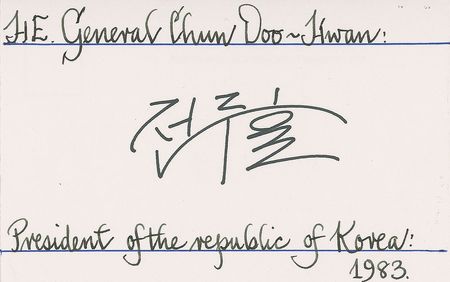 HE. General Chun Doo~Hwan:
전두환
President of the republic of Korea:
1983.